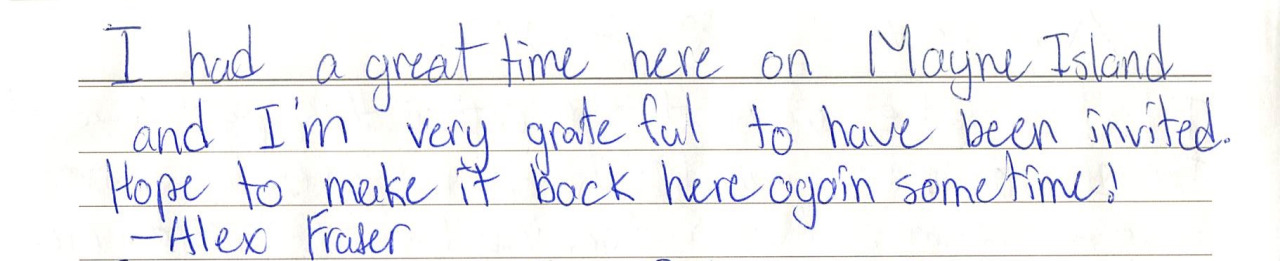 I had a great time here on Mayne Island
and I'm very grateful to have been invited.
Hope to make it back here again sometime!
-Alex Fraser